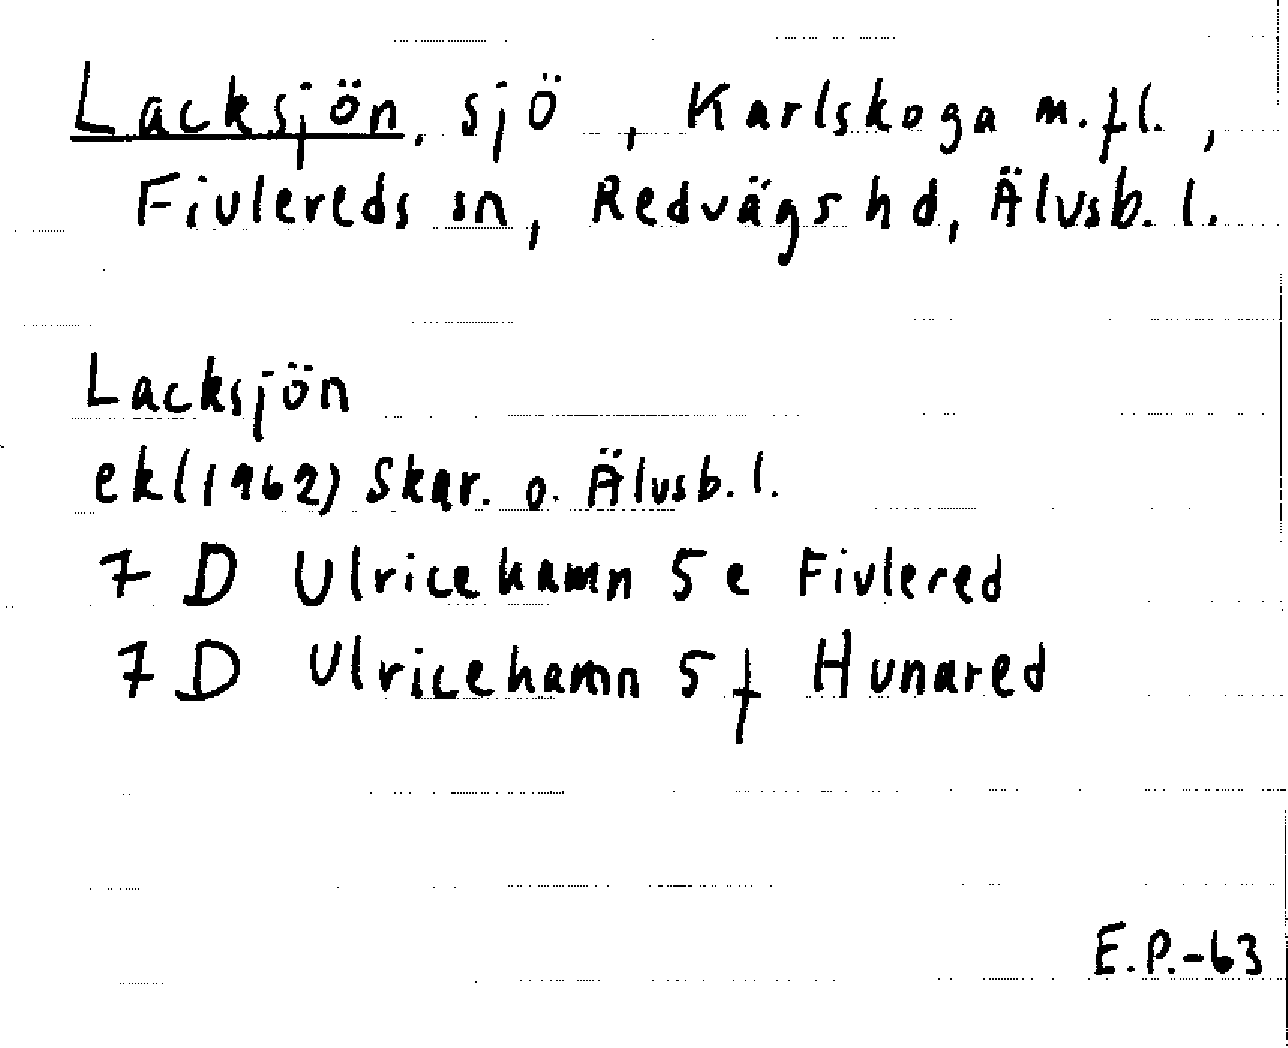 Lacksjön, sjö, Karlskoga m.fl.,
Fivlereds sn, Redvägs hd, Älvsb. l.
Lacksjön
ek(1962) Skar. o. Älvsb. l.
7 D Ulricehamn 5 e Fivlered
7 D Ulricehamn 5 f Hunared
E.P.-63